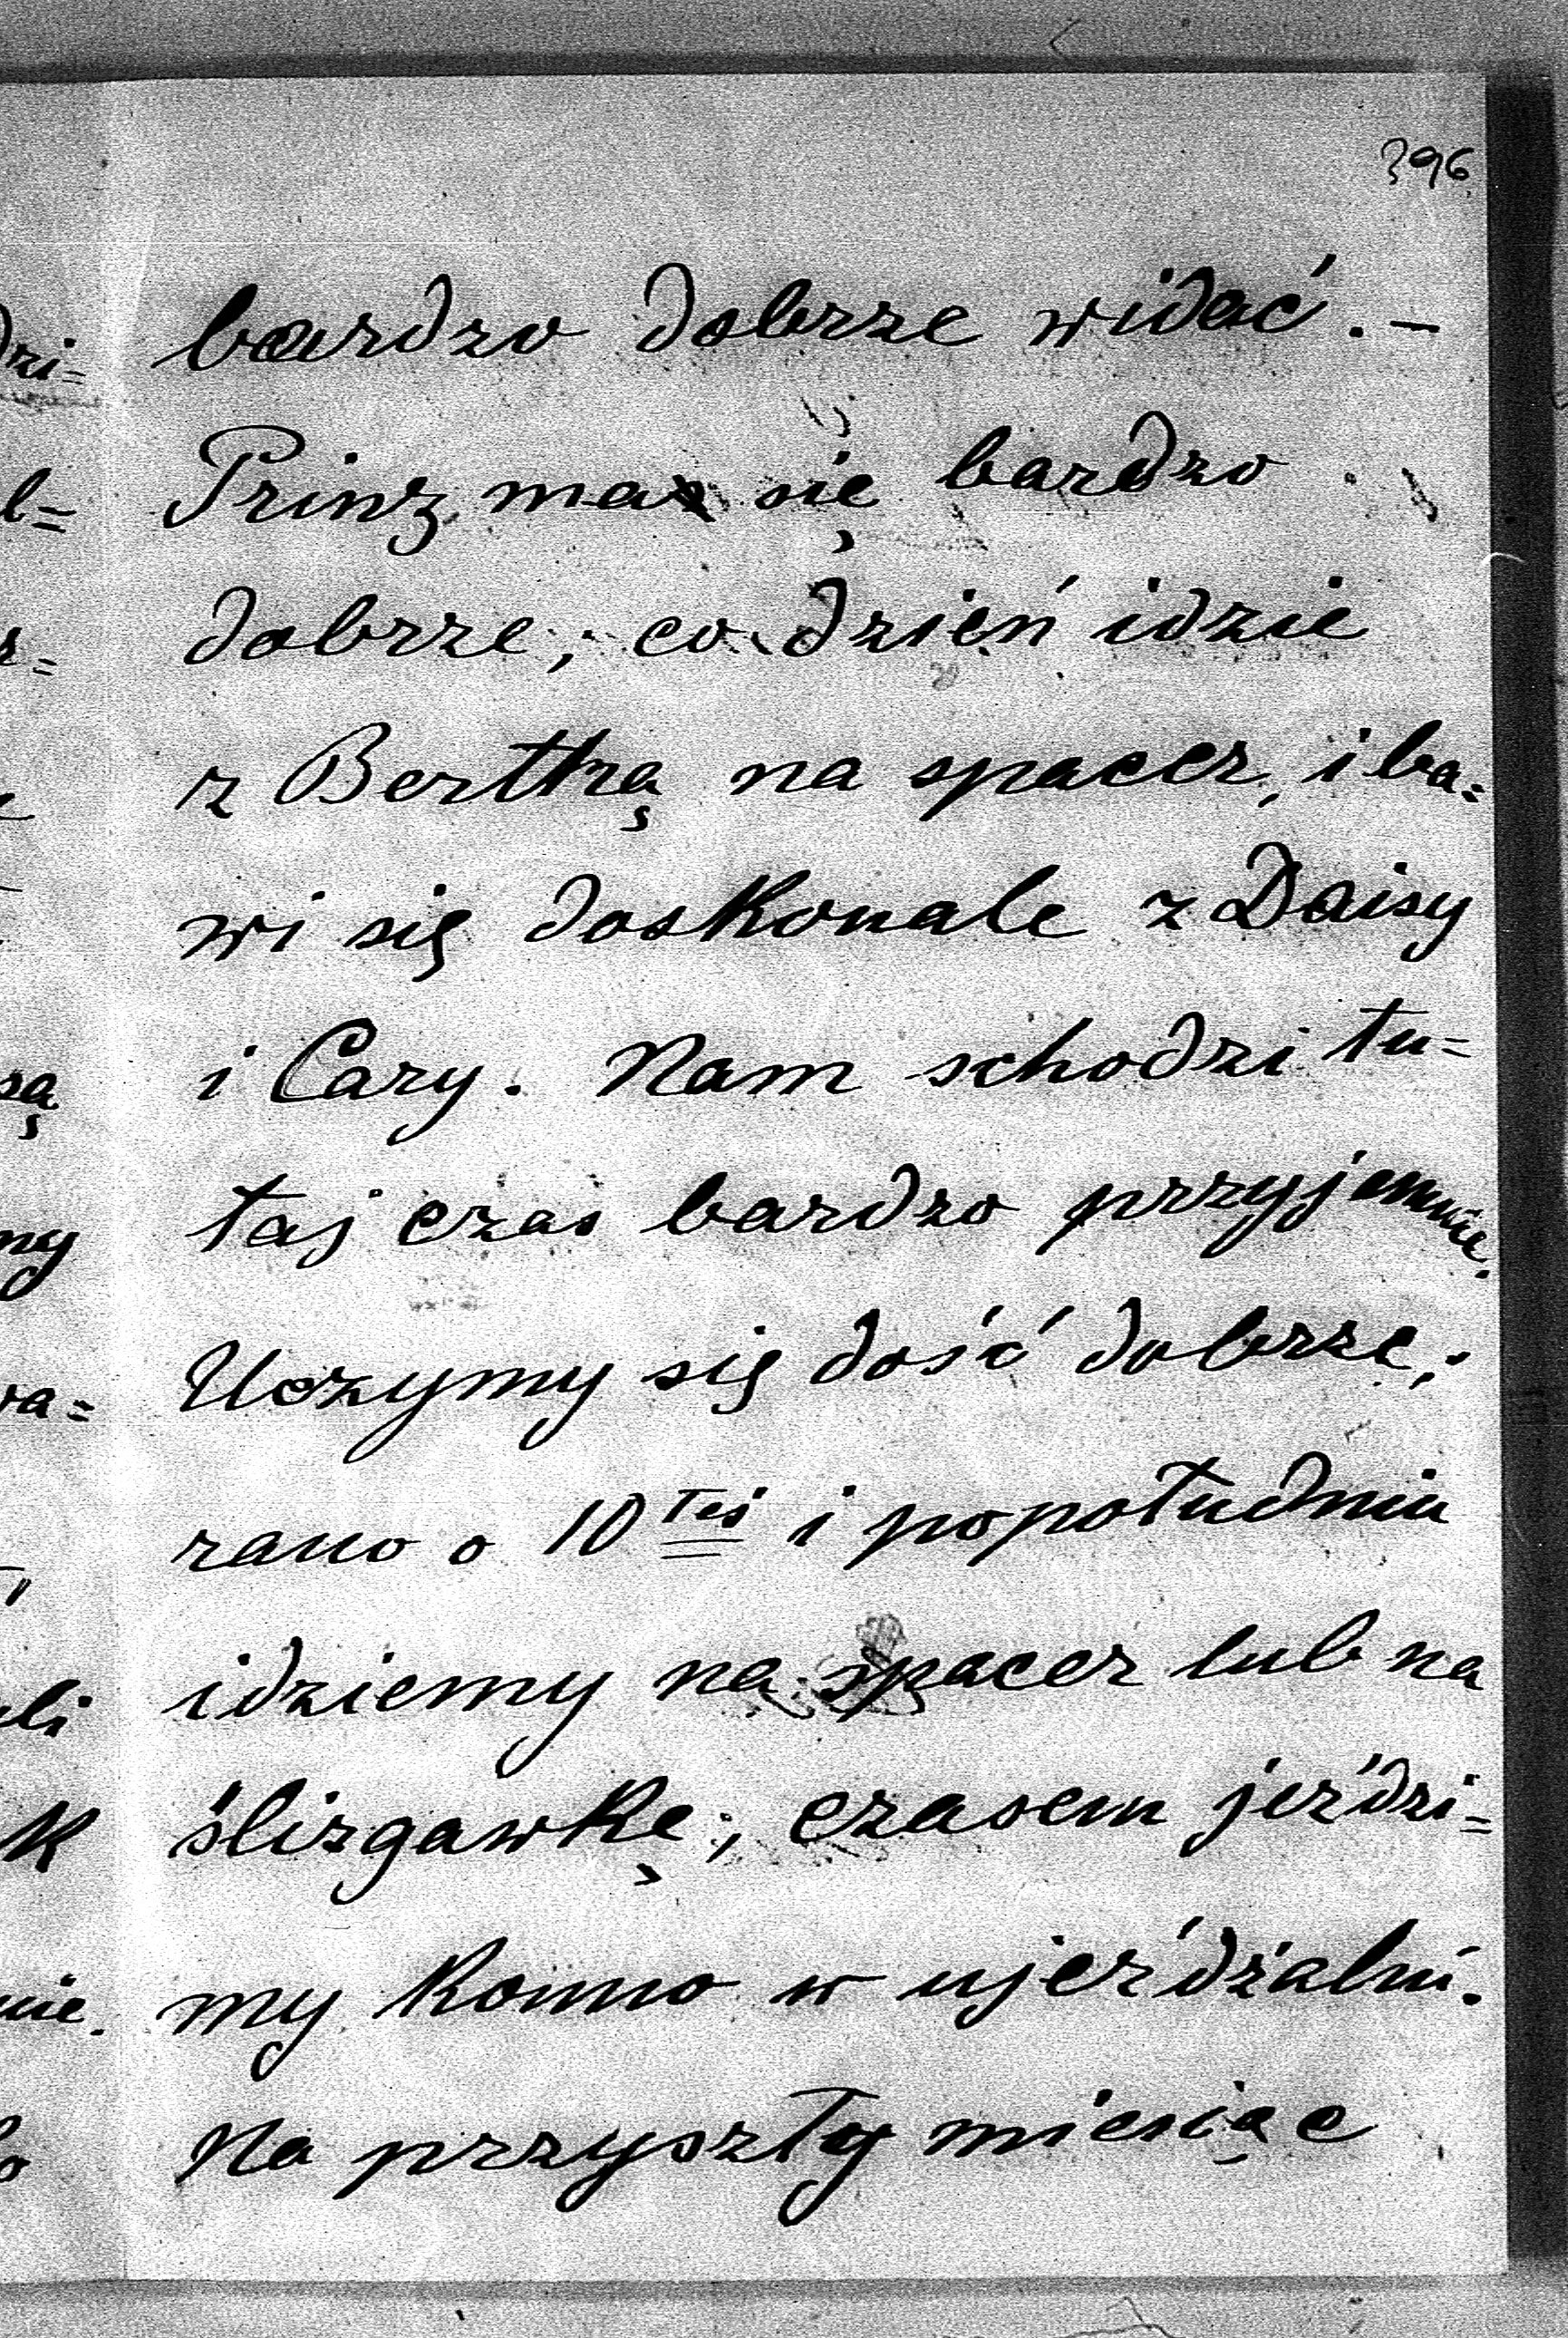 396
bardzo dobrze widać. —
Prinz ma się bardzo
dobrze; co dzień idzie
z Berthą na spacer, i ba=
wi się doskonale z Daisy
i Cary. Nam schodzi tu=
taj czas bardzo przyjemnie.
Uczymy się dość dobrze;
rano o 10 tej i popołudniu
idziemy na spacer lub na
ślizgawkę; czasem jeździ=
my konno w ujeżdżalni.
Na przyszły miesiąc